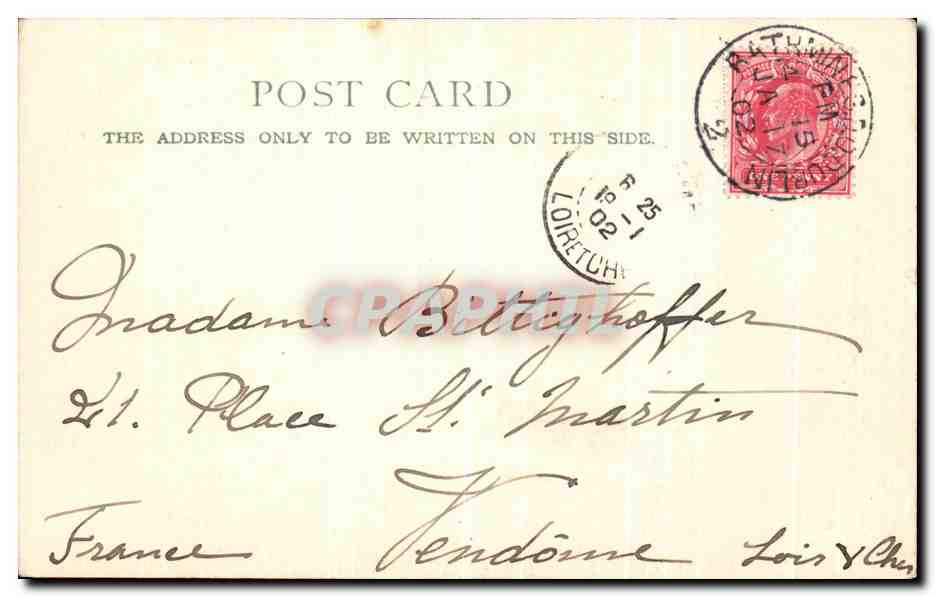 POST CARD
THE ADDRESS ONLY TO BE WRITTEN ON THIS SIDE.
RATHMINES.S.O. DUBLIN
4 15 PM
JA 17
02
2
6 25
18 - 1
02
LOIRETCH
CPAPHIL
Madame Bittighoffer
21. Place St. Martin
Vendôme
France
Loir & Cher